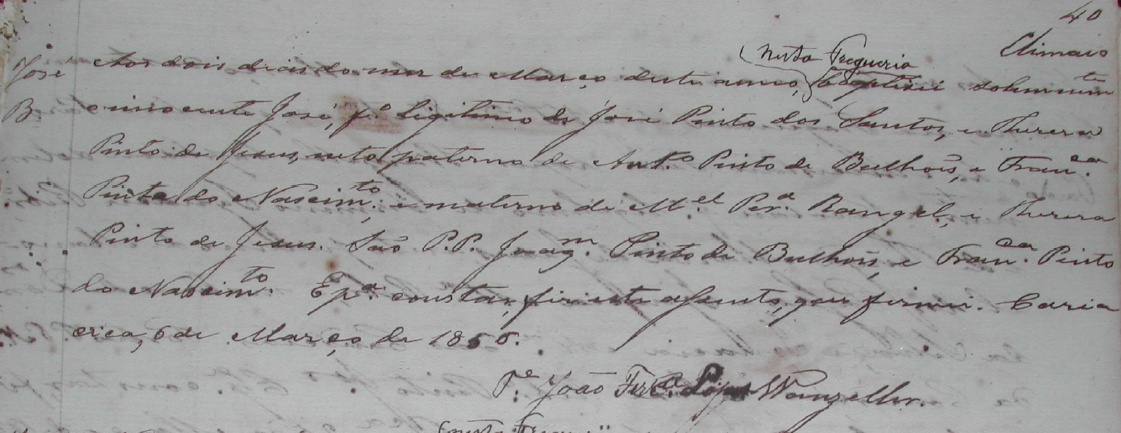 40
Climaco
nesta Freguezia
José Aos dois dias do mez de Março deste anno, baptizei solemnem.te
B o innocente José, f.º Legitimo de José Pinto dos Santos, e Thereza
Pinto de Jesus, neto paterno de Ant.º Pinto de Bulhoẽs, e Fran.ca
Pinta do Nascim.to, e materno de M.el Per.a Rangel, e Thereza
Pinto de Jesus. Saõ P.P. Joaq.m Pinto de Bulhoẽs, e Fran.ca Pinto
do Nascim.to. E p.a constar, fiz este assento, que firmei. Caria
cica, 6 de Março de 1858.
P.e João Fer.a Lopes Wanzeller.